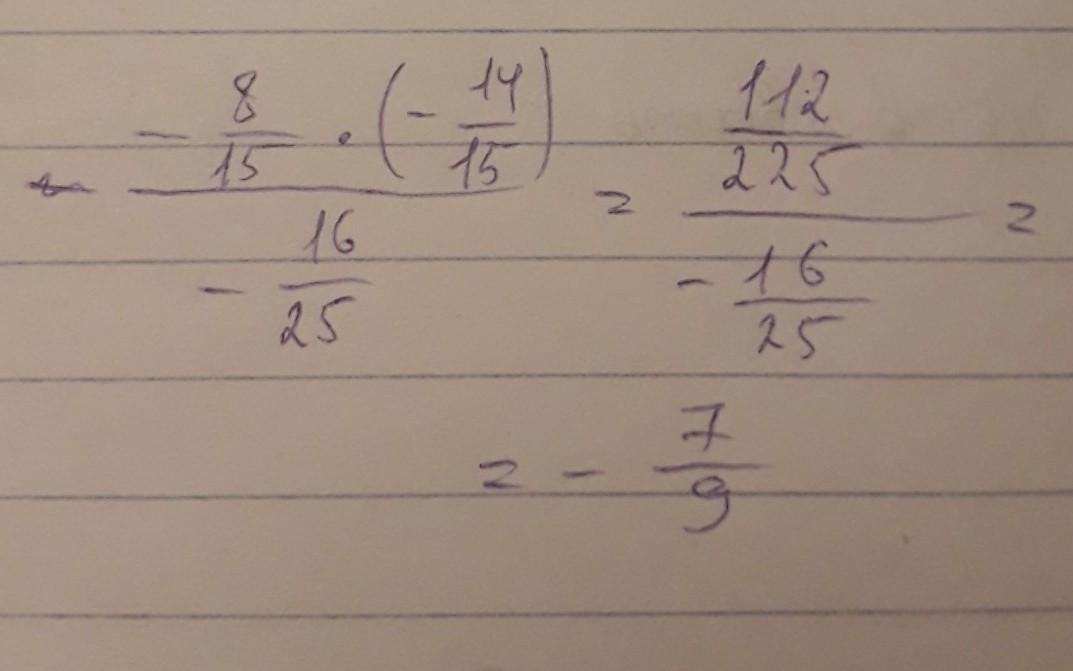 - 8/15 · (- 14/15) / - 16/25 = 112/225 / - 16/25 =
= - 7/9